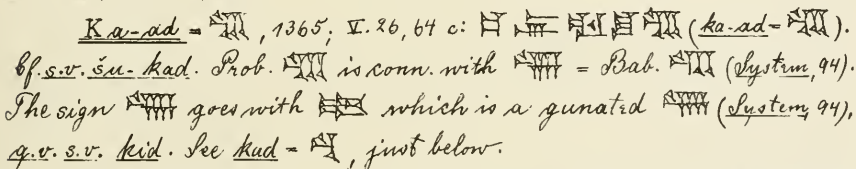 Ka-ad = , 1365; V. 26, 64 c: (ka-ad = ).
Cf. s.v. šu-kad. Prob. is conn. with = Bab. (System, 94).
The sign goes with which is a gunated (System, 94),
q.v. s.v. kid. See kud = , just below.